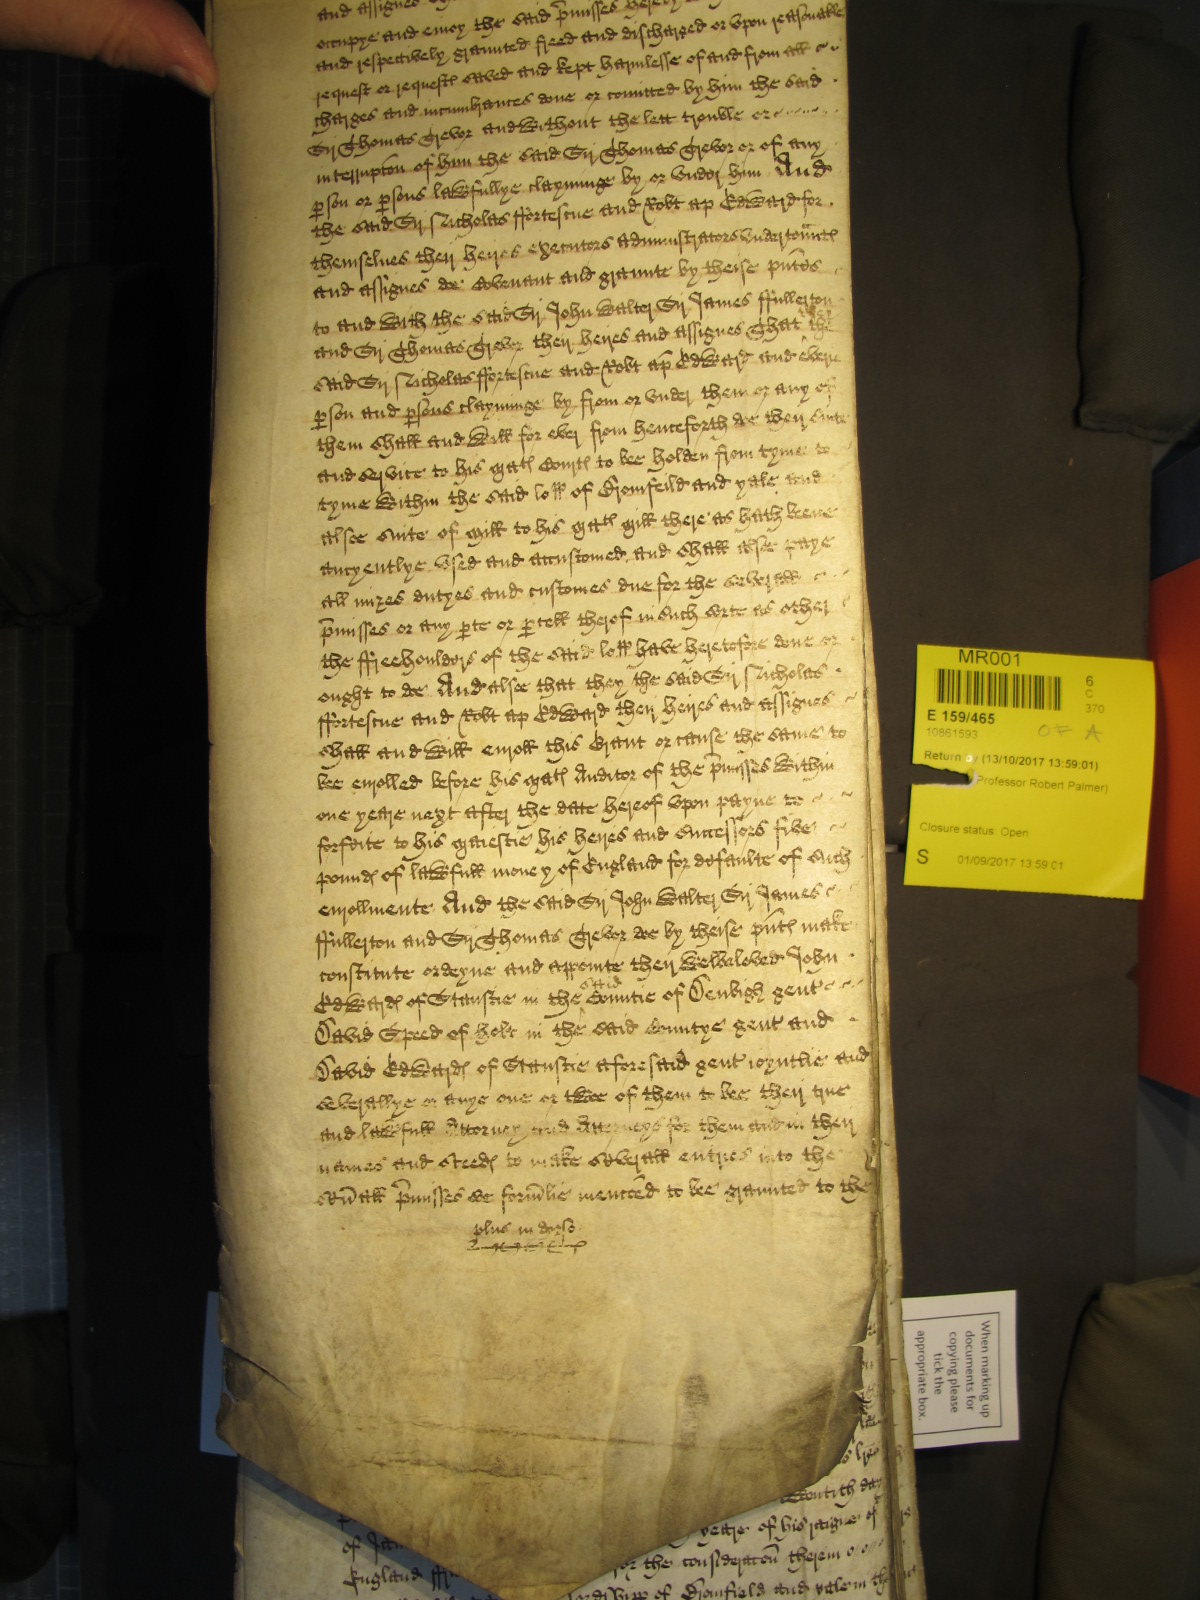 and assignes
occupye and enioy the said pmisses hereby
and respectively graunted freed and discharged or vpon reasonable
request or requests saved and kept harmlesse of and from all
charges and incumbrances done or comitted by him the said
Sir Thomas Trevor and without the lett trouble or
interrupcon of him the said Sir Thomas Trevor or of any
pson or psons lawfullye clayminge by or vnder him And
the said Sir Nicholas ffortescue and Robt ap Edward for
themselves their heires executors administrators vndertennts
and assignes doe Covenant and graunte by theise pntes
to and with the said Sir John Walter Sir James ffullerton
and Sir Thomas Trevor their heires and assignes That the
said Sir Nicholas ffortescue and Robt ap Edward and every
pson and psons clayminge by from or vnder them or any of
them shall and will for ever from henceforth doe their suite
and service to his mats Courts to bee holden from tyme to
tyme within the said lopp of Bromfeild and yale and
alsoe suite of mill to his mats mill there as hath beene
ancyentlye vsed and accustomed and shall alsoe paye
all mizes dutyes and customes due for the severall
pmisses or any pte or pcell therof in such sorte as other
the ffreehouldors of the said lopp have heretofore done or
ought to doe And alsoe that they the said Sir Nicholas
ffortescue and Robt ap Edward their heires and assignes
shall and will enroll this Graunt or cause the same to
bee enrolled before his mats Auditor of the pmisses within
one yeare next after the date hereof vpon payne to
forfeite to his maiestie his heires and Successors five
pounds of lawfull money of England for defaulte of such
enrollmente And the said Sir John Walter Sir James
ffullerton and Sir Thomas Trevor doe by theise pnts make
constitute ordeyne and appointe their welbeloved John
Edwards of Stanstie in the said Countie of Denbigh gent
David Speed of holt in the said Countye gent and
David Edwards of Stanstie aforesaid gent ioyntlie and
severallye or anye one or twoe of them to bee their true
and lawfull Attorney and Attorneys for them and in their
names and steeds to make severall entries into the
sevall pmisses soe formlie menconed to bee graunted to the
plus in dorso
MR001
6
C
370
E 159/465
10861593
OF A
Return by (13/10/2017 13:59:01)
Professor Robert Palmer)
Closure status Open
S 01/09/2017 13:59:01
When marking up
documents for
copying please
tick the
appropriate box.
yeare of his raigne of
of
for the consideracon therein
England
lordshipp of Bromfield and yale in the